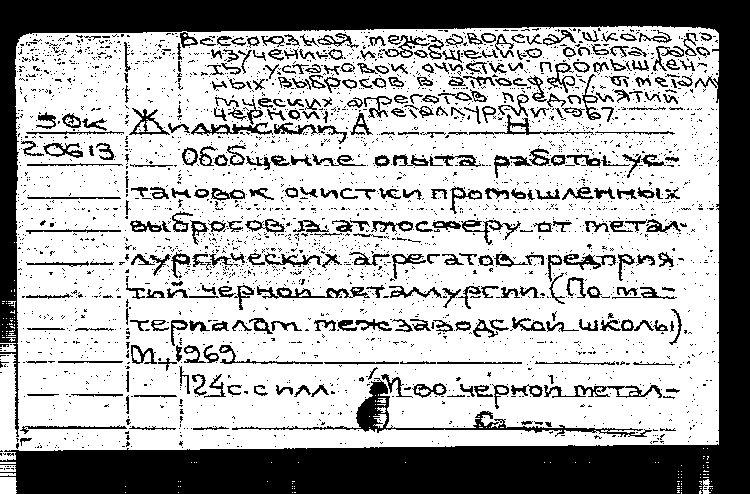 Всесоюзная межзаводская школа по
изучению и обобщению опыта рабо-
ты установок очистки промышлен-
ных выбросов в атмосферу от металл
гических агрегатов предприятий
черной металлургии. 1967.
Жилинский, А Н
20613
Обобщение опыта работы ус-
тановок очистки промышленных
выбросов в атмосферу от метал-
лургических агрегатов предприя-
тий черной металлургии. (По ма-
териалам межзаводской школы).
М., 1969.
124с. с илл. (М-во черной метал-
См.